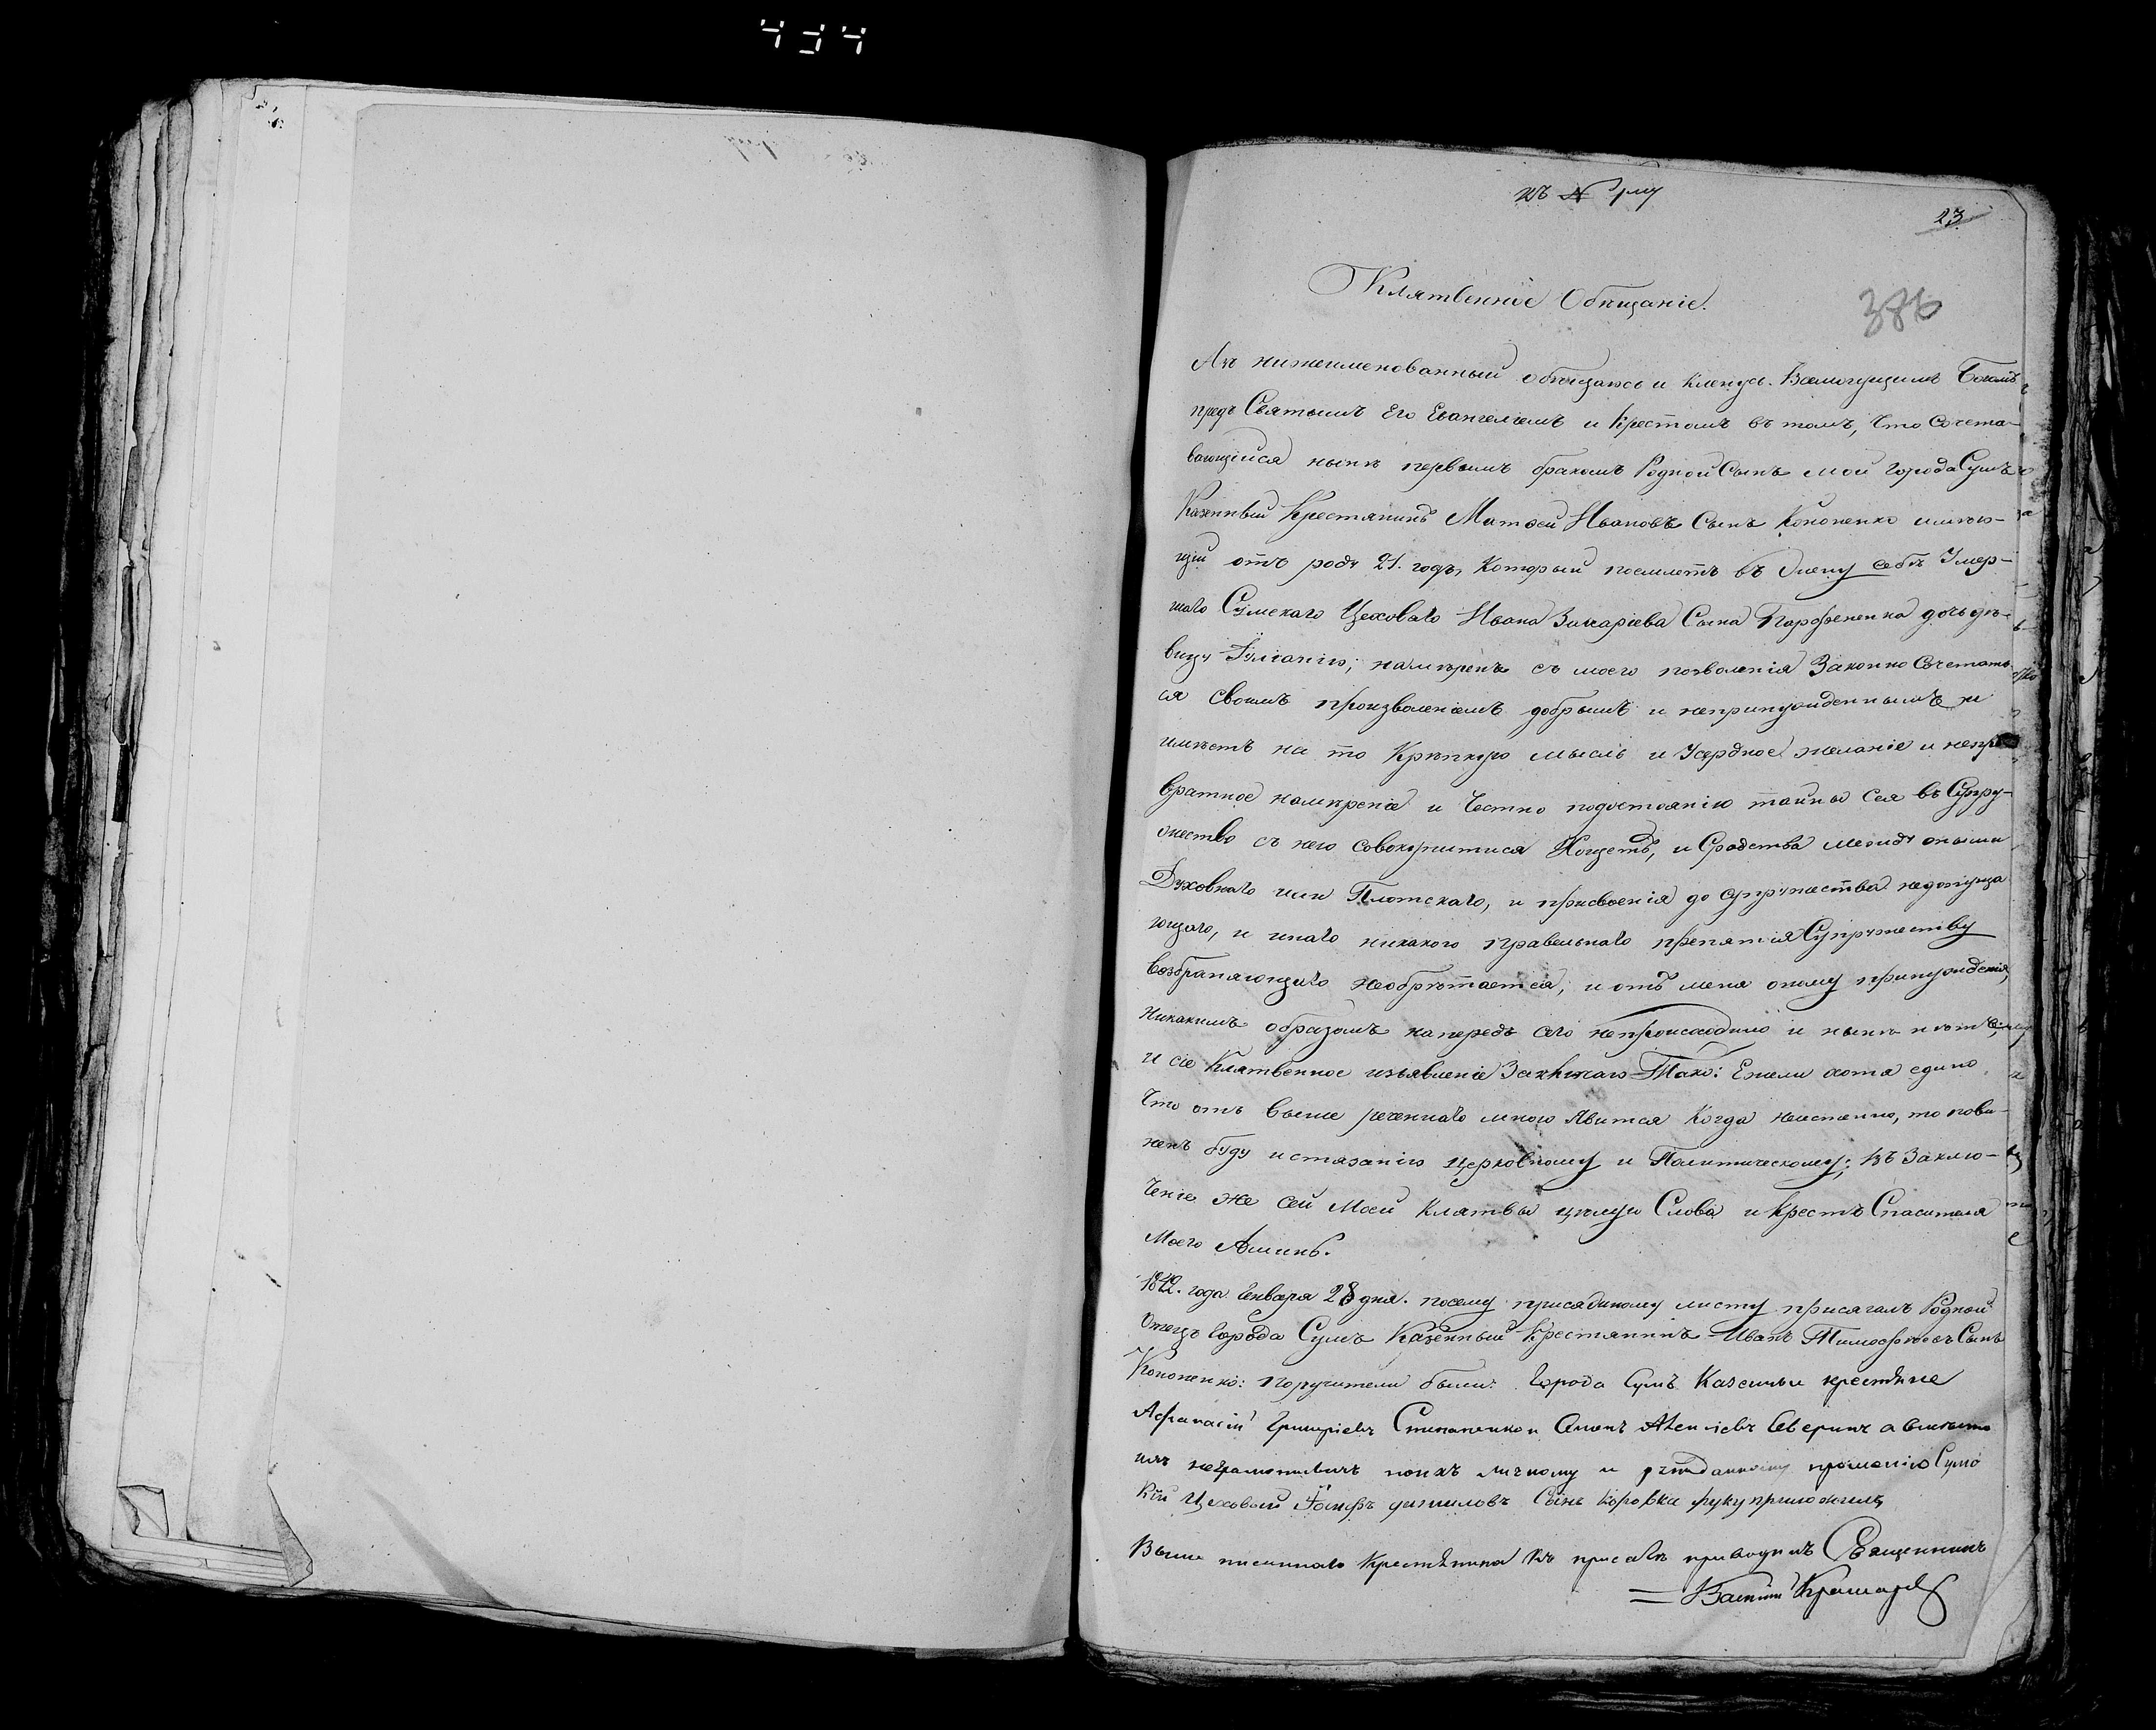 434
къ № 1му
23
Клятвенное Обѣщаніе.
386
Азъ нижеименованный обѣщаюсь и кленусь Всемогущимъ Богомъ
предъ Святымъ Его Евангеліемъ и Крестомъ въ томъ, что сочета-
вающійся нынѣ первымъ бракомъ Родной Сынъ мой города Сумъ
Казенный Крестянинъ Матѳей Ивановъ Сынъ Кононенко имѣю-
щій отъ роду 21. годъ, Который поемлетъ въ жену себѣ Умер-
шаго Сумскаго Цеховаго Ивана Захаріева Сына Парфененка дочь дѣ-
вицу Іуліанію; намѣренъ съ моего позволенія Законно Сочетать-
ся своимъ произволеніемъ добрымъ и непринужденнымъ и
имѣетъ на то Крѣпкую мысль и Усердное желаніе и непре-
вратное намѣреніе и Честно подостоянію тайны сея въ Супру-
жество съ нею совокупитися Хощетъ, и Сродства между оными
Духовнаго или Плотскаго, и присвоенія до супружества недопуща
ющаго, и инаго никакого правельнаго препятія Супружеству
возбраняющаго необрѣтается, и отъ меня оному принужденія,
Никакимъ образомъ напередъ сего непроисходило и нынѣ нѣтъ;
и сіе Клятвенное изъявленіе Заключаю Тако: Ежели хотя едино
Что отъ выше реченнаго мною Явится Когда неистенно, то пови-
ненъ буду истязанію Церковному и Политическому; въ Заклю-
ченіе же сей Моей Клятвы цѣлую Слова и Крестъ Спасителя
Моего Аминь.
1842. года Генваря 28 дня. посему присяжному листу присягалъ Родной
Отецъ Города Сумъ Казенный Крестянинъ Иванъ Тимофѣевъ Сынъ
Кононенко: Поручители были: Города Сумъ Казенныи крестяне
Афанасій Григоріевъ Степаненко и Семенъ Северинъ а вмѣсто
ихъ неграмотныхъ поихъ личному и прошенію Сумс
кій Цеховый Іосифъ даниловъ Сынъ Коровка руку приложилъ
Выше писаннаго Крестянина къ присягѣ приводилъ Священникъ